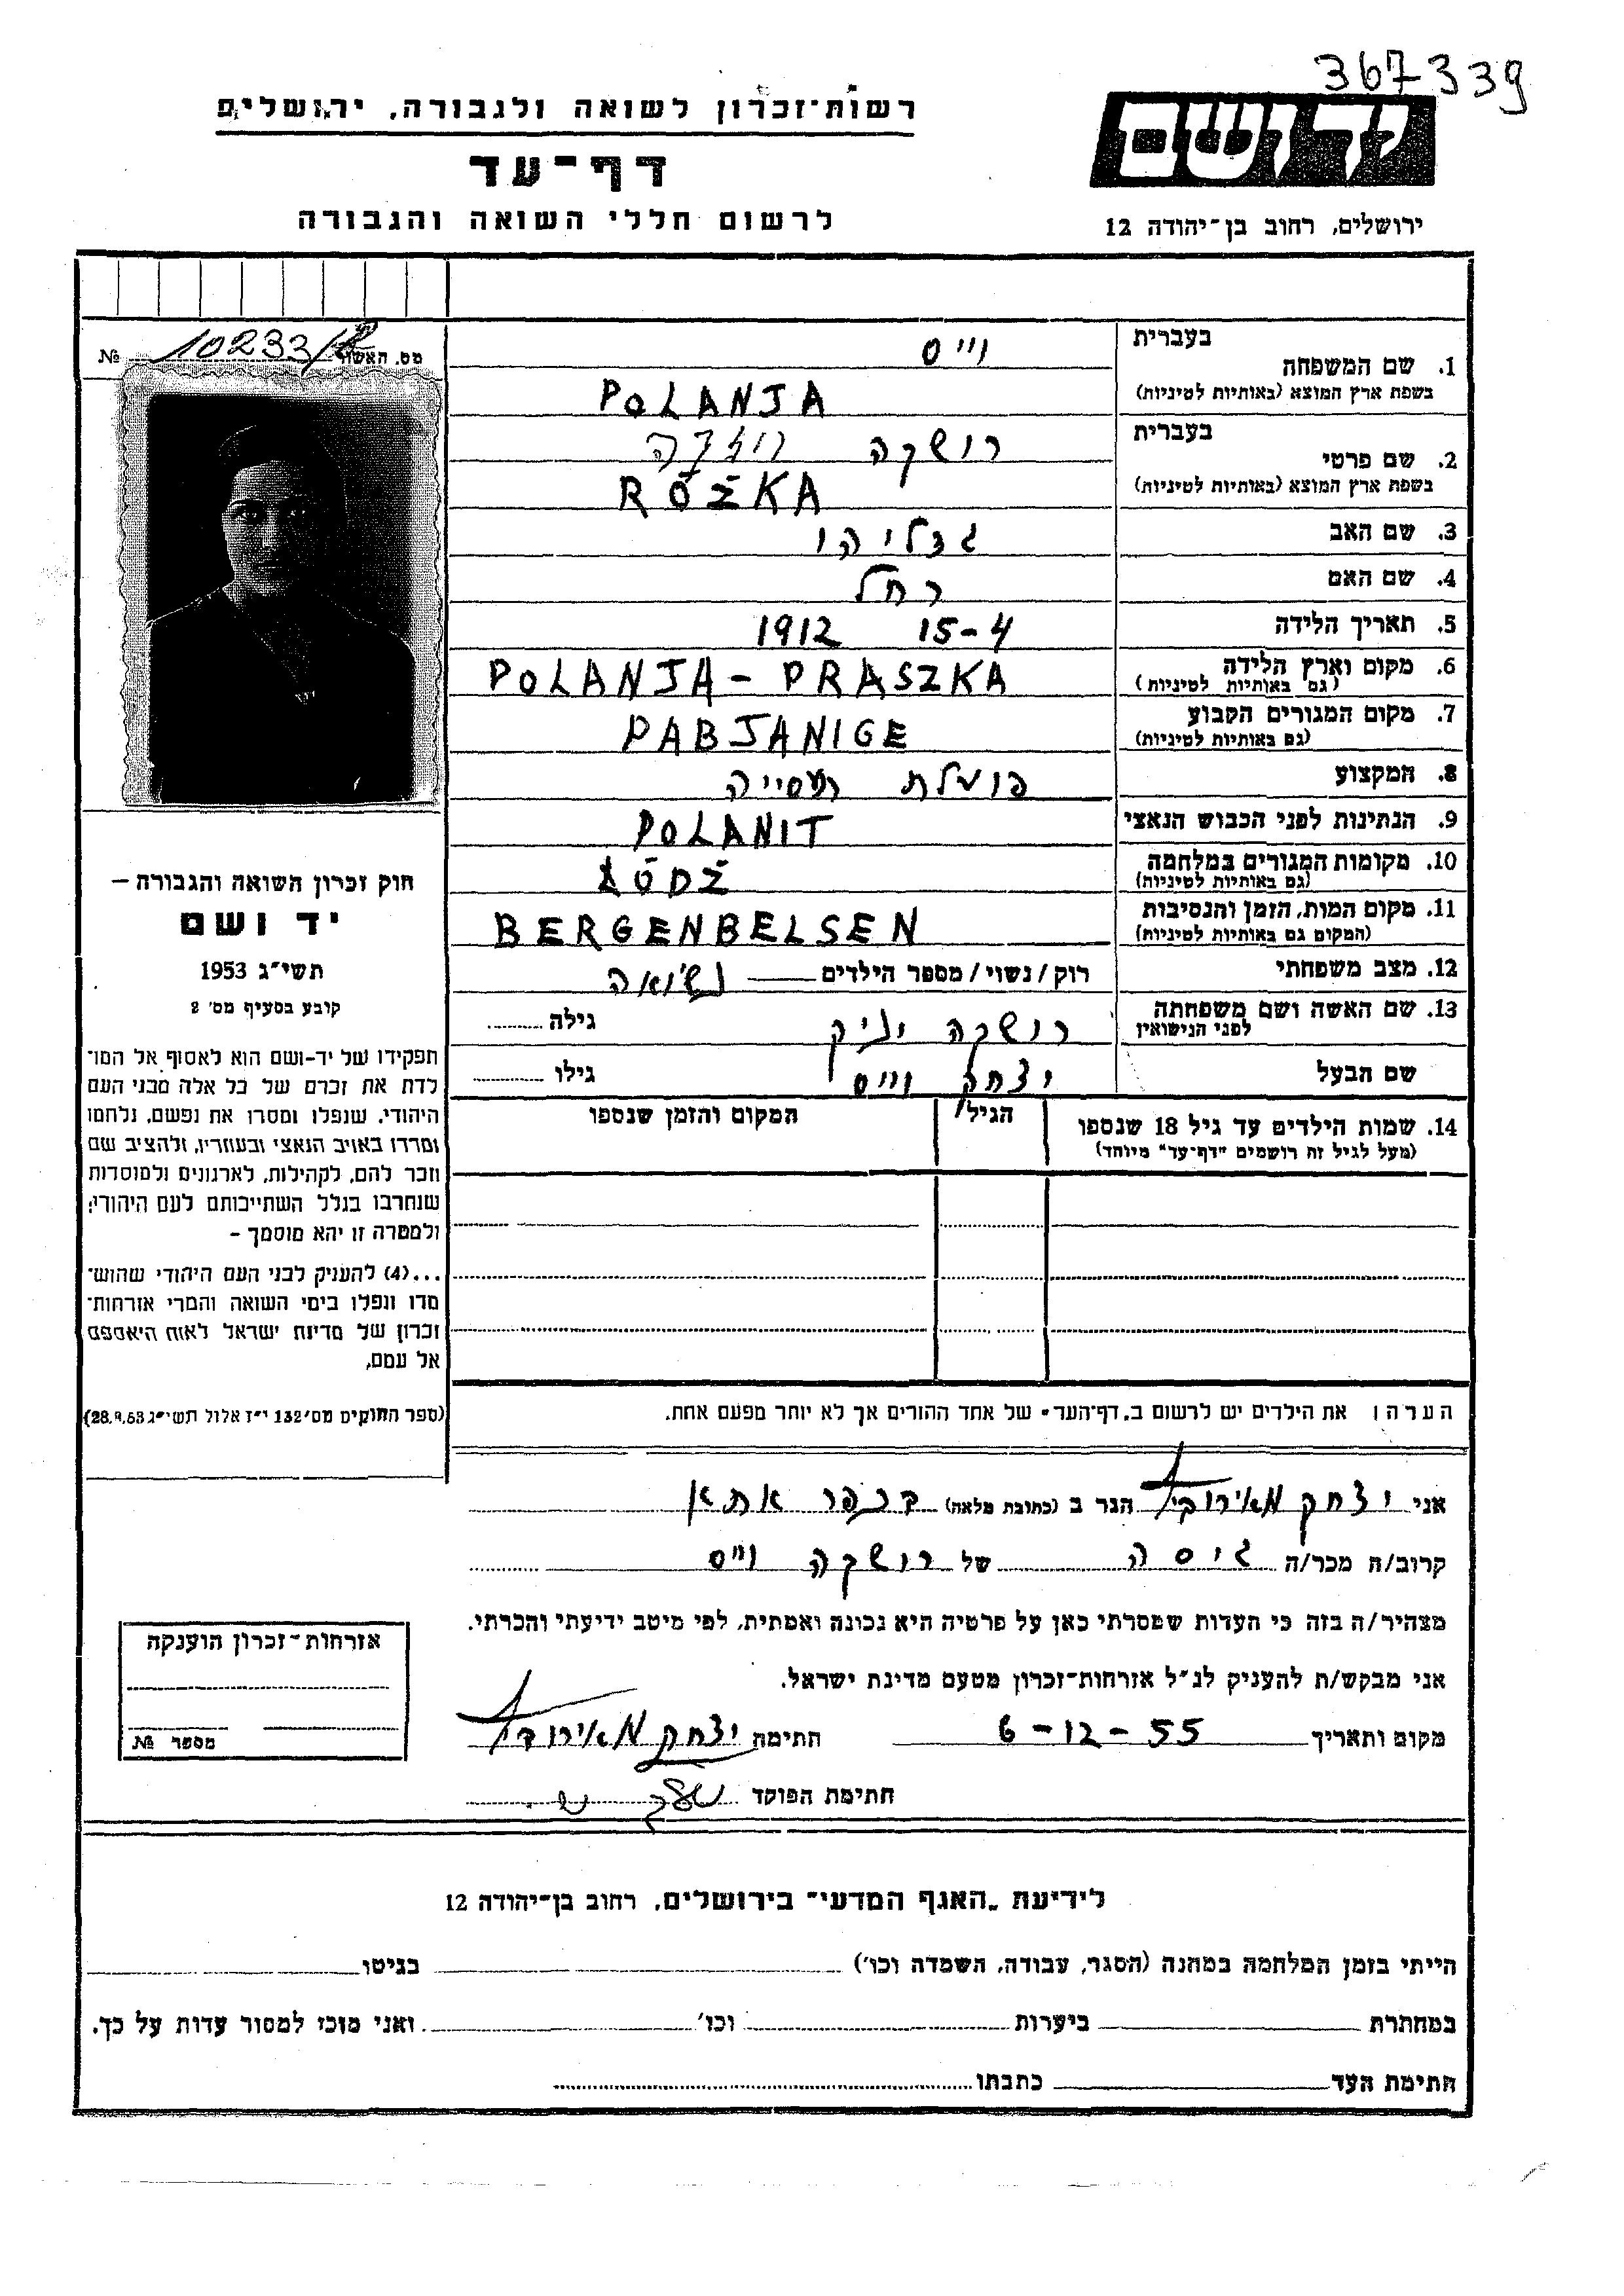 367339
רשות־זכרון לשואה ולגבורה, ירושלים
דף־עד
לרשום חללי השואה והגבורה
יד ושם
ירושלים, רחוב בן־יהודה 12
מס. האשה № 10233/2
1. שם המשפחה בעברית וייס
בשפת ארץ המוצא (באותיות לטיניות) POLANJA
2. שם פרטי בעברית רושקה רוז'קה
בשפת ארץ המוצא (באותיות לטיניות) RÓŻKA
3. שם האב גדליהו
4. שם האם רחל
5. תאריך הלידה 15-4 1912
6. מקום וארץ הלידה (גם באותיות לטיניות) POLANJA - PRASZKA
7. מקום המגורים הקבוע (גם באותיות לטיניות) PABJANIGE
8. המקצוע פועלת תעסייה
9. הנתינות לפני הכבוש הנאצי POLANIT
10. מקומות המגורים במלחמה (גם באותיות לטיניות) ŁÓDŻ
11. מקום המות, הזמן והנסיבות (המקום גם באותיות לטיניות) BERGENBELSEN
12. מצב משפחתי רוק/נשוי/מספר הילדים נשואה
13. שם האשה ושם משפחתה לפני הנישואין רושקה יניק גילה
שם הבעל יצחק וייס גילו
14. שמות הילדים עד גיל 18 שנספו הגיל המקום והזמן שנספו
(מעל לגיל זה רושמים "דף־עד" מיוחד)
הערה: את הילדים יש לרשום ב„דף־העד" של אחד ההורים אך לא יותר מפעם אחת.
חוק זכרון השואה והגבורה –
יד ושם
תשי"ג 1953
קובע בסעיף מס' 2
תפקידו של יד-ושם הוא לאסוף אל המו־
לדת את זכרם של כל אלה מבני העם
היהודי, שנפלו ומסרו את נפשם, נלחמו
ומרדו באויב הנאצי ובעוזריו, ולהציב שם
וזכר להם, לקהילות, לארגונים ולמוסדות
שנחרבו בגלל השתייכותם לעם היהודי;
ולמטרה זו יהא מוסמך –
...(4) להעניק לבני העם היהודי שהוש־
מדו ונפלו בימי השואה והמרי אזרחות־
זכרון של מדינת ישראל לאות היאספם
אל עמם.
(ספר החוקים מס' 132 י"ז אלול תשי"ג 28.9.53)
אני יצחק מאירוביץ הגר ב (כתובת מלאה) בכפר אתא
קרוב/ה מכר/ה גיסה של רושקה וייס
מצהיר/ה בזה כי העדות שמסרתי כאן על פרטיה היא נכונה ואמתית, לפי מיטב ידיעתי והכרתי.
אני מבקש/ת להעניק לנ"ל אזרחות־זכרון מטעם מדינת ישראל.
מקום ותאריך 6-12-55 חתימה יצחק מאירוביץ
חתימת הפוקד
אזרחות־זכרון הוענקה
מספר №
לידיעת „האגף המדעי" בירושלים, רחוב בן־יהודה 12
הייתי בזמן המלחמה במחנה (הסגר, עבודה, השמדה וכו') בגיטו
במחתרת ביערות וכו' ואני מוכן למסור עדות על כך.
חתימת העד כתבתו